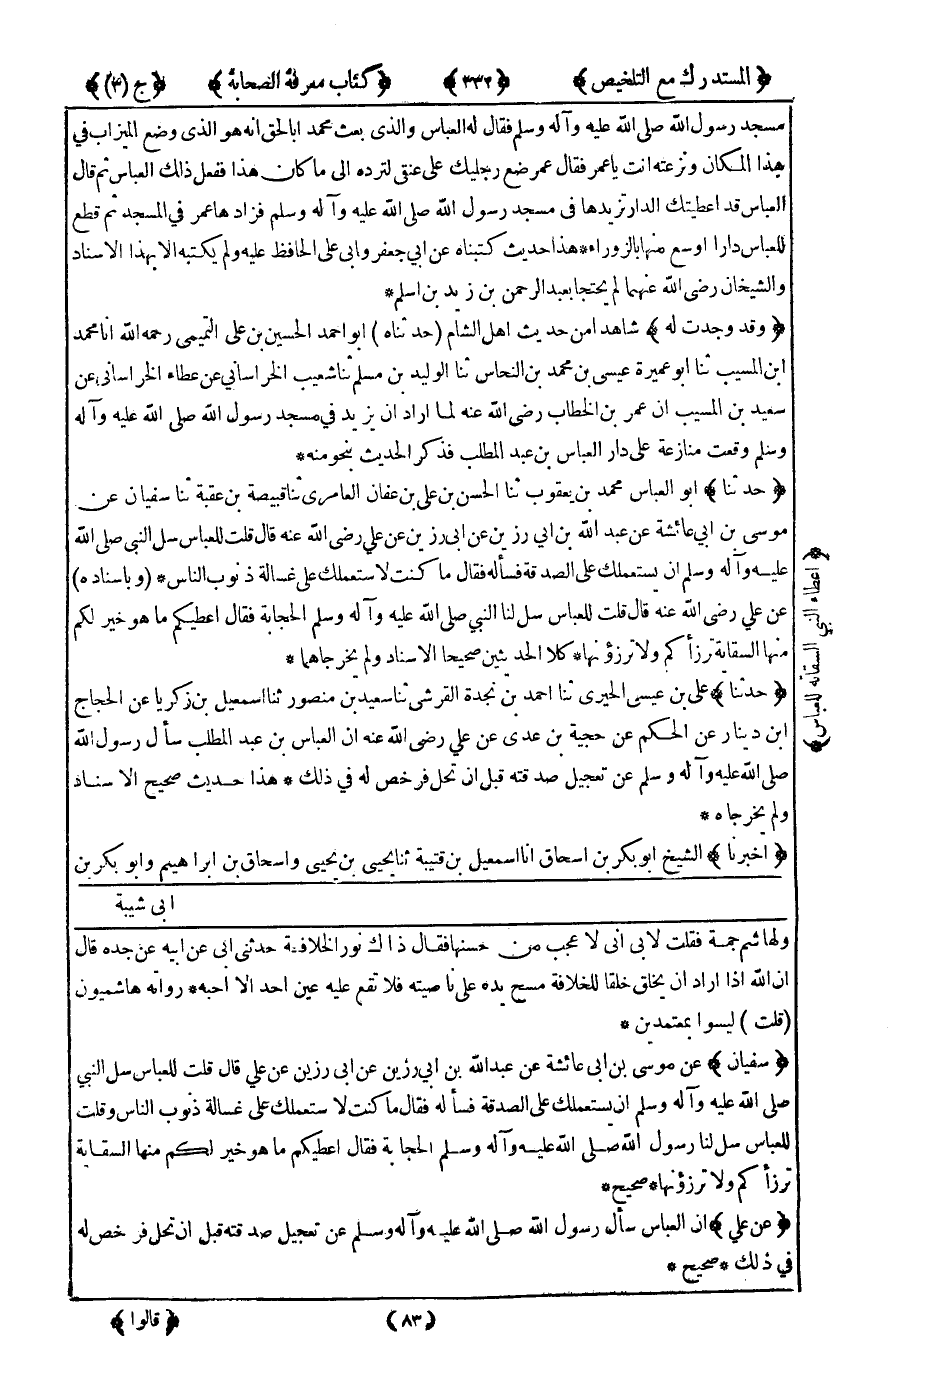 ﴿ المستدرك مع التلخيص ﴾ ﴿ ٣٣٢ ﴾ ﴿ كتاب معرفة الصحابة ﴾ ﴿ ج (٣) ﴾
مسجد رسول الله صلى الله عليه وآله وسلم فقال له العباس والذى بعث محمدا بالحق انه هو الذى وضع الميزاب فى
هذا المكان ونزعته انت ياعمر فقال عمر ضع رجليك على عنقى لترده الى ما كان هذا ففعل ذالك العباس ثم قال
العباس قد اعطيتك الدار تزيدها فى مسجد رسول الله صلى الله عليه وآله وسلم فزادها عمر في المسجد ثم قطع
للعباس دارا اوسع منها بالزوراء * هذا حديث كتبناه عن ابي جعفر وابى على الحافظ عليه ولم يكتبه الا بهذا الاسناد
والشيخان رضى الله عنهما لم يحتجا بعبد الرحمن بن زيد بن اسلم *
﴿ وقد وجدت له ﴾ شاهدا من حديث اهل الشام (حدثناه) ابو احمد الحسين بن على التميمى رحمه الله انا محمد
ابن المسيب ثنا ابو عميرة عيسى بن محمد بن النحاس ثنا الوليد بن مسلم ثنا شعيب الخراساني عن عطاء الخراسانى عن
سعيد بن المسيب ان عمر بن الخطاب رضى الله عنه لما اراد ان يزيد في مسجد رسول الله صلى الله عليه وآله
وسلم وقعت منازعة على دار العباس بن عبد المطلب فذكر الحديث بنحو منه *
﴿ حدثنا ﴾ ابو العباس محمد بن يعقوب ثنا الحسن بن علي بن عفان العامرى ثنا قبيصة بن عقبة ثنا سفيان عن
موسى بن ابي عائشة عن عبد الله بن ابي رزين عن ابى رزين عن علي رضى الله عنه قال قلت للعباس سل النبى صلى الله
عليه وآله وسلم ان يستعملك على الصدقة فسأله فقال ما كنت لاستعملك على غسالة ذنوب الناس * (وباسناده)
عن علي رضى الله عنه قال قلت للعباس سل لنا النبي صلى الله عليه وآله وسلم الحجابة فقال اعطيكم ما هو خير لكم
منها السقاية ترزأكم ولا ترزؤنها * كلا الحديثين صحيحا الاسناد ولم يخرجاهما *
﴿ حدثنا ﴾ علي بن عيسى الحيرى ثنا احمد بن نجدة القرشى ثنا سعيد بن منصور ثنا اسمعيل بن زكريا عن الحجاج
ابن دينار عن الحكم عن حجية بن عدى عن علي رضى الله عنه ان العباس بن عبد المطلب سأل رسول الله
صلى الله عليه وآله وسلم عن تعجيل صدقته قبل ان تحل فرخص له في ذلك * هذا حديث صحيح الاسناد
ولم يخرجاه *
﴿ اخبرنا ﴾ الشيخ ابو بكر بن اسحاق انا اسمعيل بن قتيبة ثنا يحيى بن يحيى واسحاق بن ابراهيم وابو بكر بن
ابى شيبة
﴿ اعطاء النبي السقاية للعباس ﴾
ولها شم جمة فقلت لابى انى لا عجب من حسنها فقال ذاك نور الخلافة حدثنى ابى عن ابيه عن جده قال
ان الله اذا اراد ان يخلق خلقا للخلافة مسح يده على ناصيته فلا تقع عليه عين احد الا احبه * رواته هاشميون
(قلت) ليسوا بمعتمدين *
﴿ سفيان ﴾ عن موسى بن ابى عائشة عن عبدالله بن ابي رزين عن ابى رزين عن علي قال قلت للعباس سل النبي
صلى الله عليه وآله وسلم ان يستعملك على الصدقة فسأله فقال ما كنت لا ستعملك على غسالة ذنوب الناس وقلت
للعباس سل لنا رسول الله صلى الله عليه وآله وسلم الحجابة فقال اعطيكم ما هو خير لكم منها السقاية
ترزأكم ولا ترزؤنها * صحيح *
﴿ عن علي ﴾ ان العباس سأل رسول الله صلى الله عليه وآله وسلم عن تعجيل صدقته قبل ان تحل فرخص له
في ذلك * صحيح *
(٨٣) ﴿ قالوا ﴾